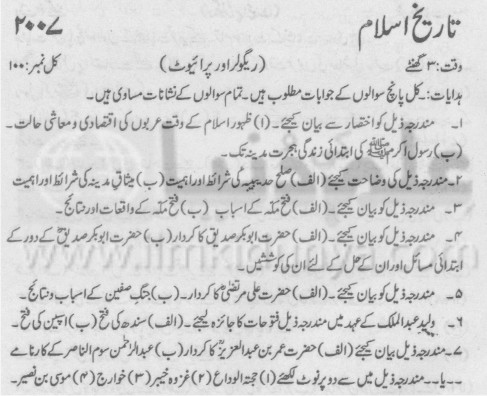 تاریخ اسلام ۲۰۰۷
وقت: ۳ گھنٹے (ریگولر اور پرائیوٹ) کل نمبر: ۱۰۰
ہدایات:۔ کل پانچ سوالوں کے جوابات مطلوب ہیں۔ تمام سوالوں کے نشانات مساوی ہیں۔
۱۔ مندرجہ ذیل کو اختصار سے بیان کیجئے۔ (۱) ظہور اسلام کے وقت عربوں کی اقتصادی و معاشی حالت۔
(ب) رسول اکرم ﷺ کی ابتدائی زندگی ہجرت مدینہ تک۔
۲۔ مندرجہ ذیل کی وضاحت کیجئے۔ (الف) صلح حدیبیہ کی شرائط اور اہمیت (ب) میثاق مدینہ کی شرائط اور اہمیت
۳۔ مندرجہ ذیل کو بیان کیجئے۔ (الف) فتح مکہ کے اسباب (ب) فتح مکہ کے واقعات اور نتائج۔
۴۔ مندرجہ ذیل کو بیان کیجئے۔ (الف) حضرت ابوبکر صدیقؓ کا کردار (ب) حضرت ابوبکر صدیقؓ کے دور کے
ابتدائی مسائل اور ان کے حل کے لئے ان کی کوششیں۔
۵۔ مندرجہ ذیل کو بیان کیجئے۔ (الف) حضرت علی مرتضیٰؓ کا کردار۔ (ب) جنگ صفین کے اسباب و نتائج۔
۶۔ ولید عبدالملک کے عہد میں مندرجہ ذیل فتوحات کا جائزہ لیجئے۔ (الف) سندھ کی فتح (ب) اسپین کی فتح۔
۷۔ مندرجہ ذیل کو بیان کیجئے۔ (الف) حضرت عمر بن عبدالعزیزؒ کا کردار (ب) عبدالرحمٰن سوم الناصر کے کارنامے
۔۔یا۔۔ مندرجہ ذیل میں سے دو پر نوٹ لکھئے (۱) حجۃ الوداع (۲) غزوہ خیبر (۳) خوارج (۴) موسیٰ بن نصیر۔
www.ilmkidunya.com